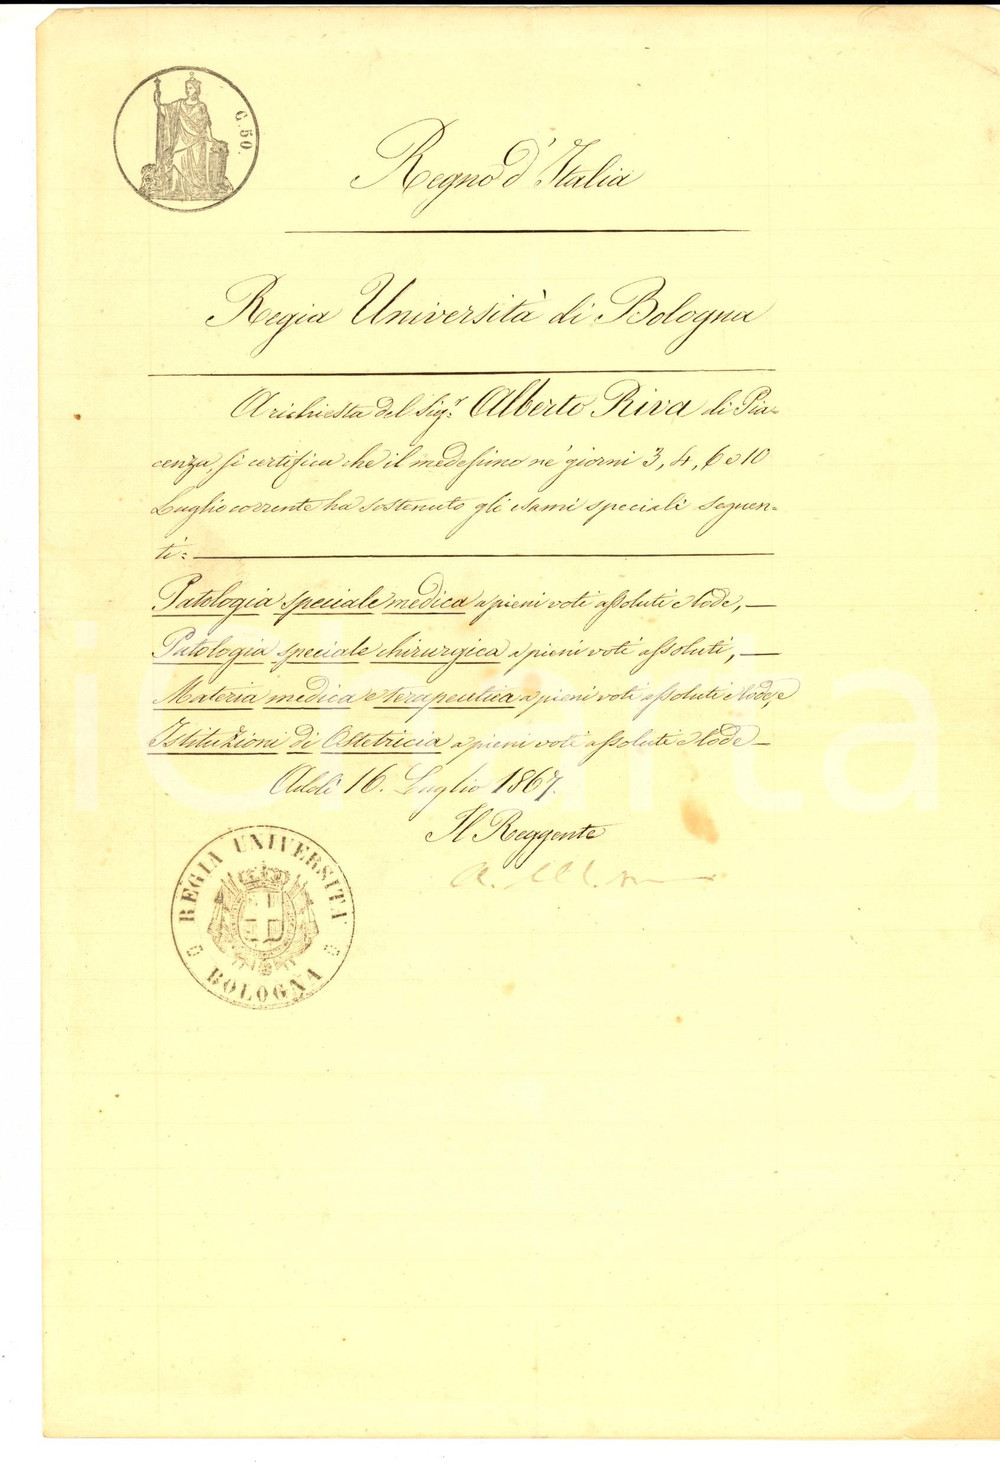 C. 50.
Regno d'Italia
Regia Università di Bologna
A richiesta del Sig.r Alberto Riva di Pia-
cenza, si certifica che il medesimo ne' giorni 3, 4, 6 e 10
Luglio corrente ha sostenuto gli esami speciali seguen-
ti:
Patologia speciale medica a pieni voti assoluti e lode, —
Patologia speciale chirurgica a pieni voti assoluti, —
Materia medica e terapeutica a pieni voti assoluti e lode, e
Istituzioni di Ostetricia a pieni voti assoluti e lode —
Addì 16. Luglio 1867.
Il Reggente
REGIA UNIVERSITÀ
BOLOGNA